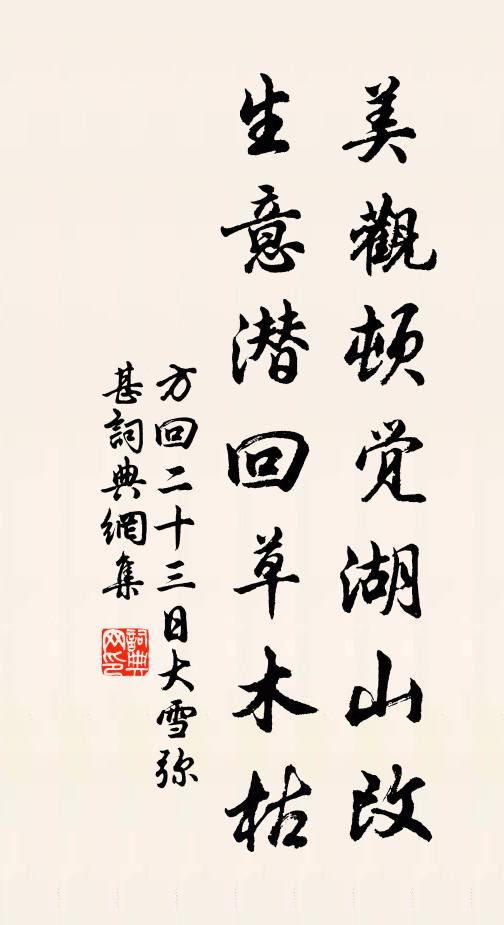 美觀頓觉湖山改
生意潜回草木枯
方回二十三日大雪弥
甚詞典網集
詞典网印